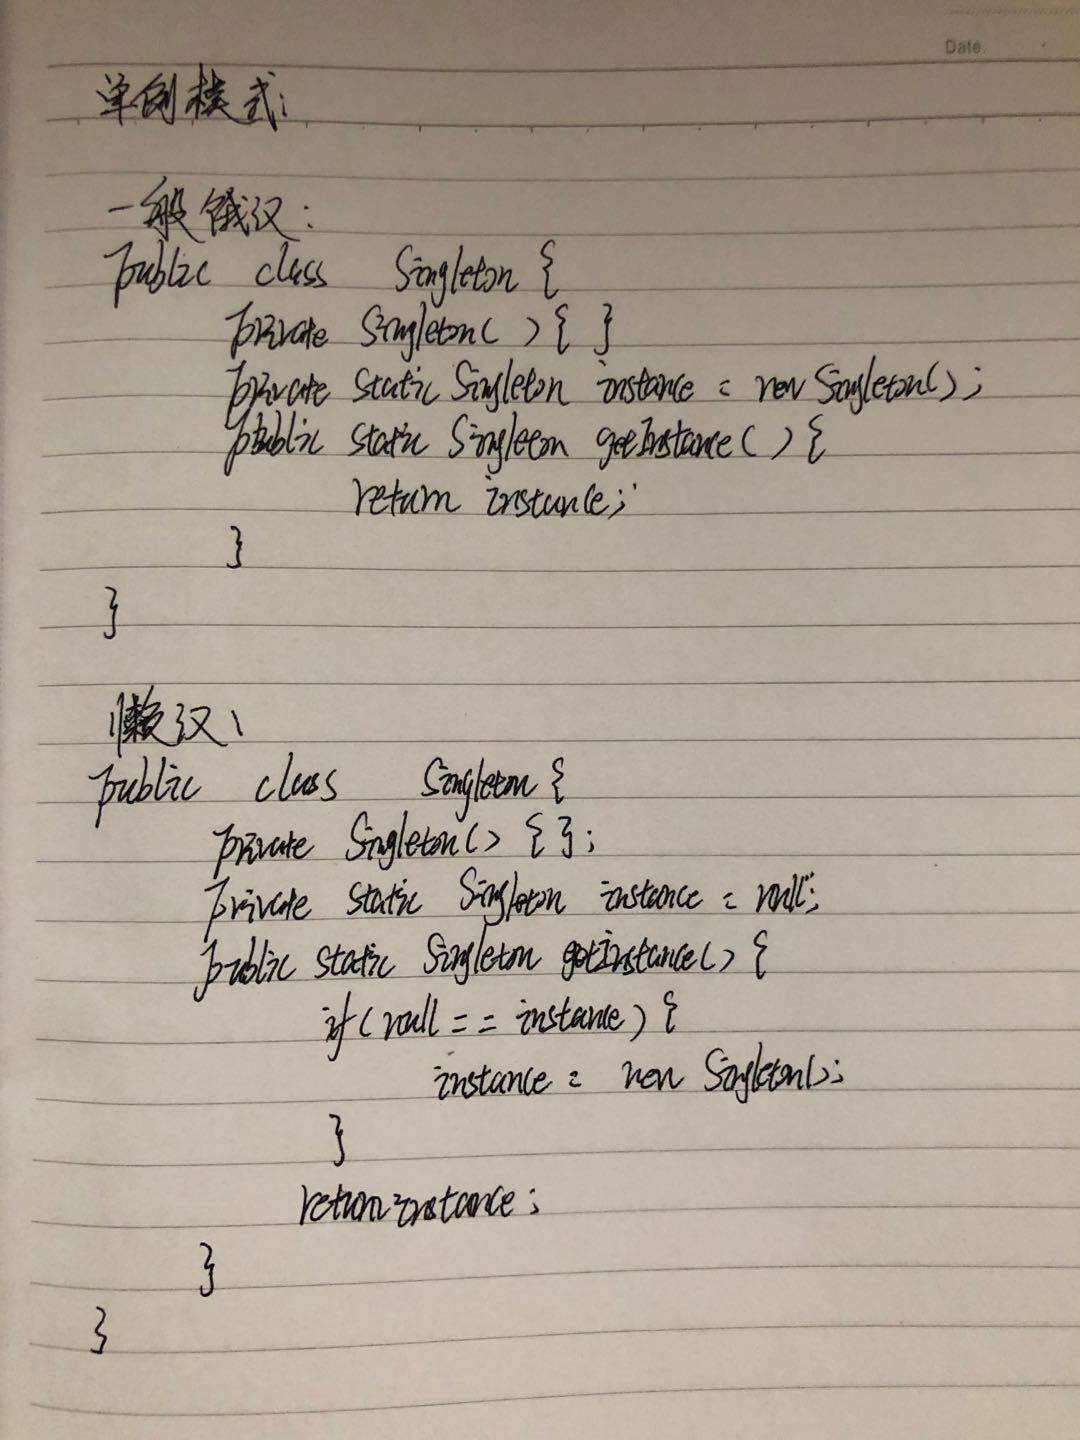 Date.
单例模式:
一般饿汉:
public class Singleton {
private Singleton( ) { }
private static Singleton instance = new Singleton();
public static Singleton getInstance( ) {
return instance;
}
}
懒汉、
public class Singleton {
private Singleton() { };
private static Singleton instance = null;
public static Singleton getInstance() {
if (null == instance) {
instance = new Singleton();
}
return instance;
}
}